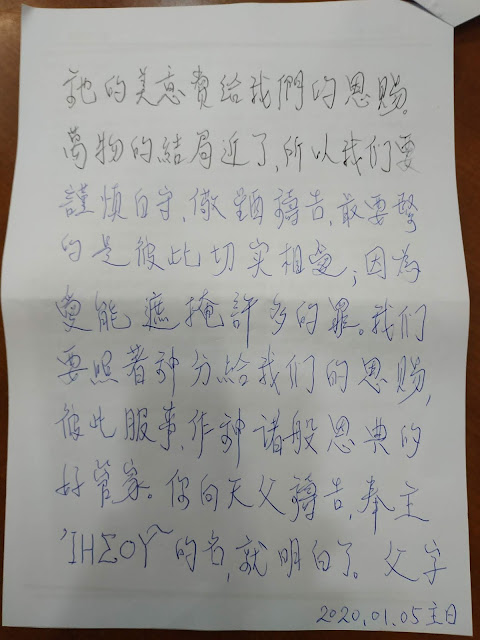 祂的美意賚給我們的恩賜。
萬物的結局近了,所以我们要
謹慎自守,儆醒禱告,最要緊
的是彼此切实相愛;因為
愛能遮掩許多的罪。我们
要照著神分給我们的恩赐,
彼此服事,作神诸般恩典的
好管家。你向天父禱告,奉主
'ΙΗΣΟΥ~的名,就明白了。父字
2020.01.05主日